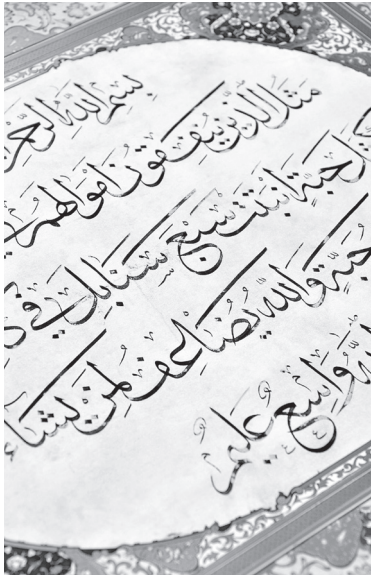 بِسْمِ اللّٰهِ
مَثَلُ الَّذِينَ يُنفِقُونَ أَمْوَالَهُمْ
حَبَّةٍ أَنبَتَتْ سَبْعَ سَنَابِلَ فِي
حَبَّةٍ وَاللّٰهُ يُضَاعِفُ لِمَن يَشَاءُ
وَاسِعٌ عَلِيمٌ